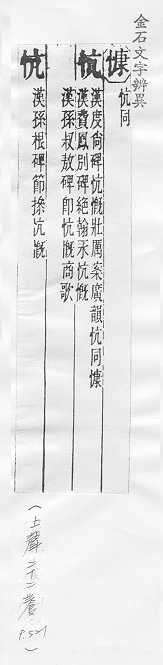 金石文字辨異
慷 忼同
忼 漢度尚碑忼慨壯厲案廣韻忼同慷
漢費鳳別碑絶翰永忼慨
漢孫叔敖碑即忼慨商歌
忼 漢孫根碑節操忼慨
(上聲二十二養 P.527)